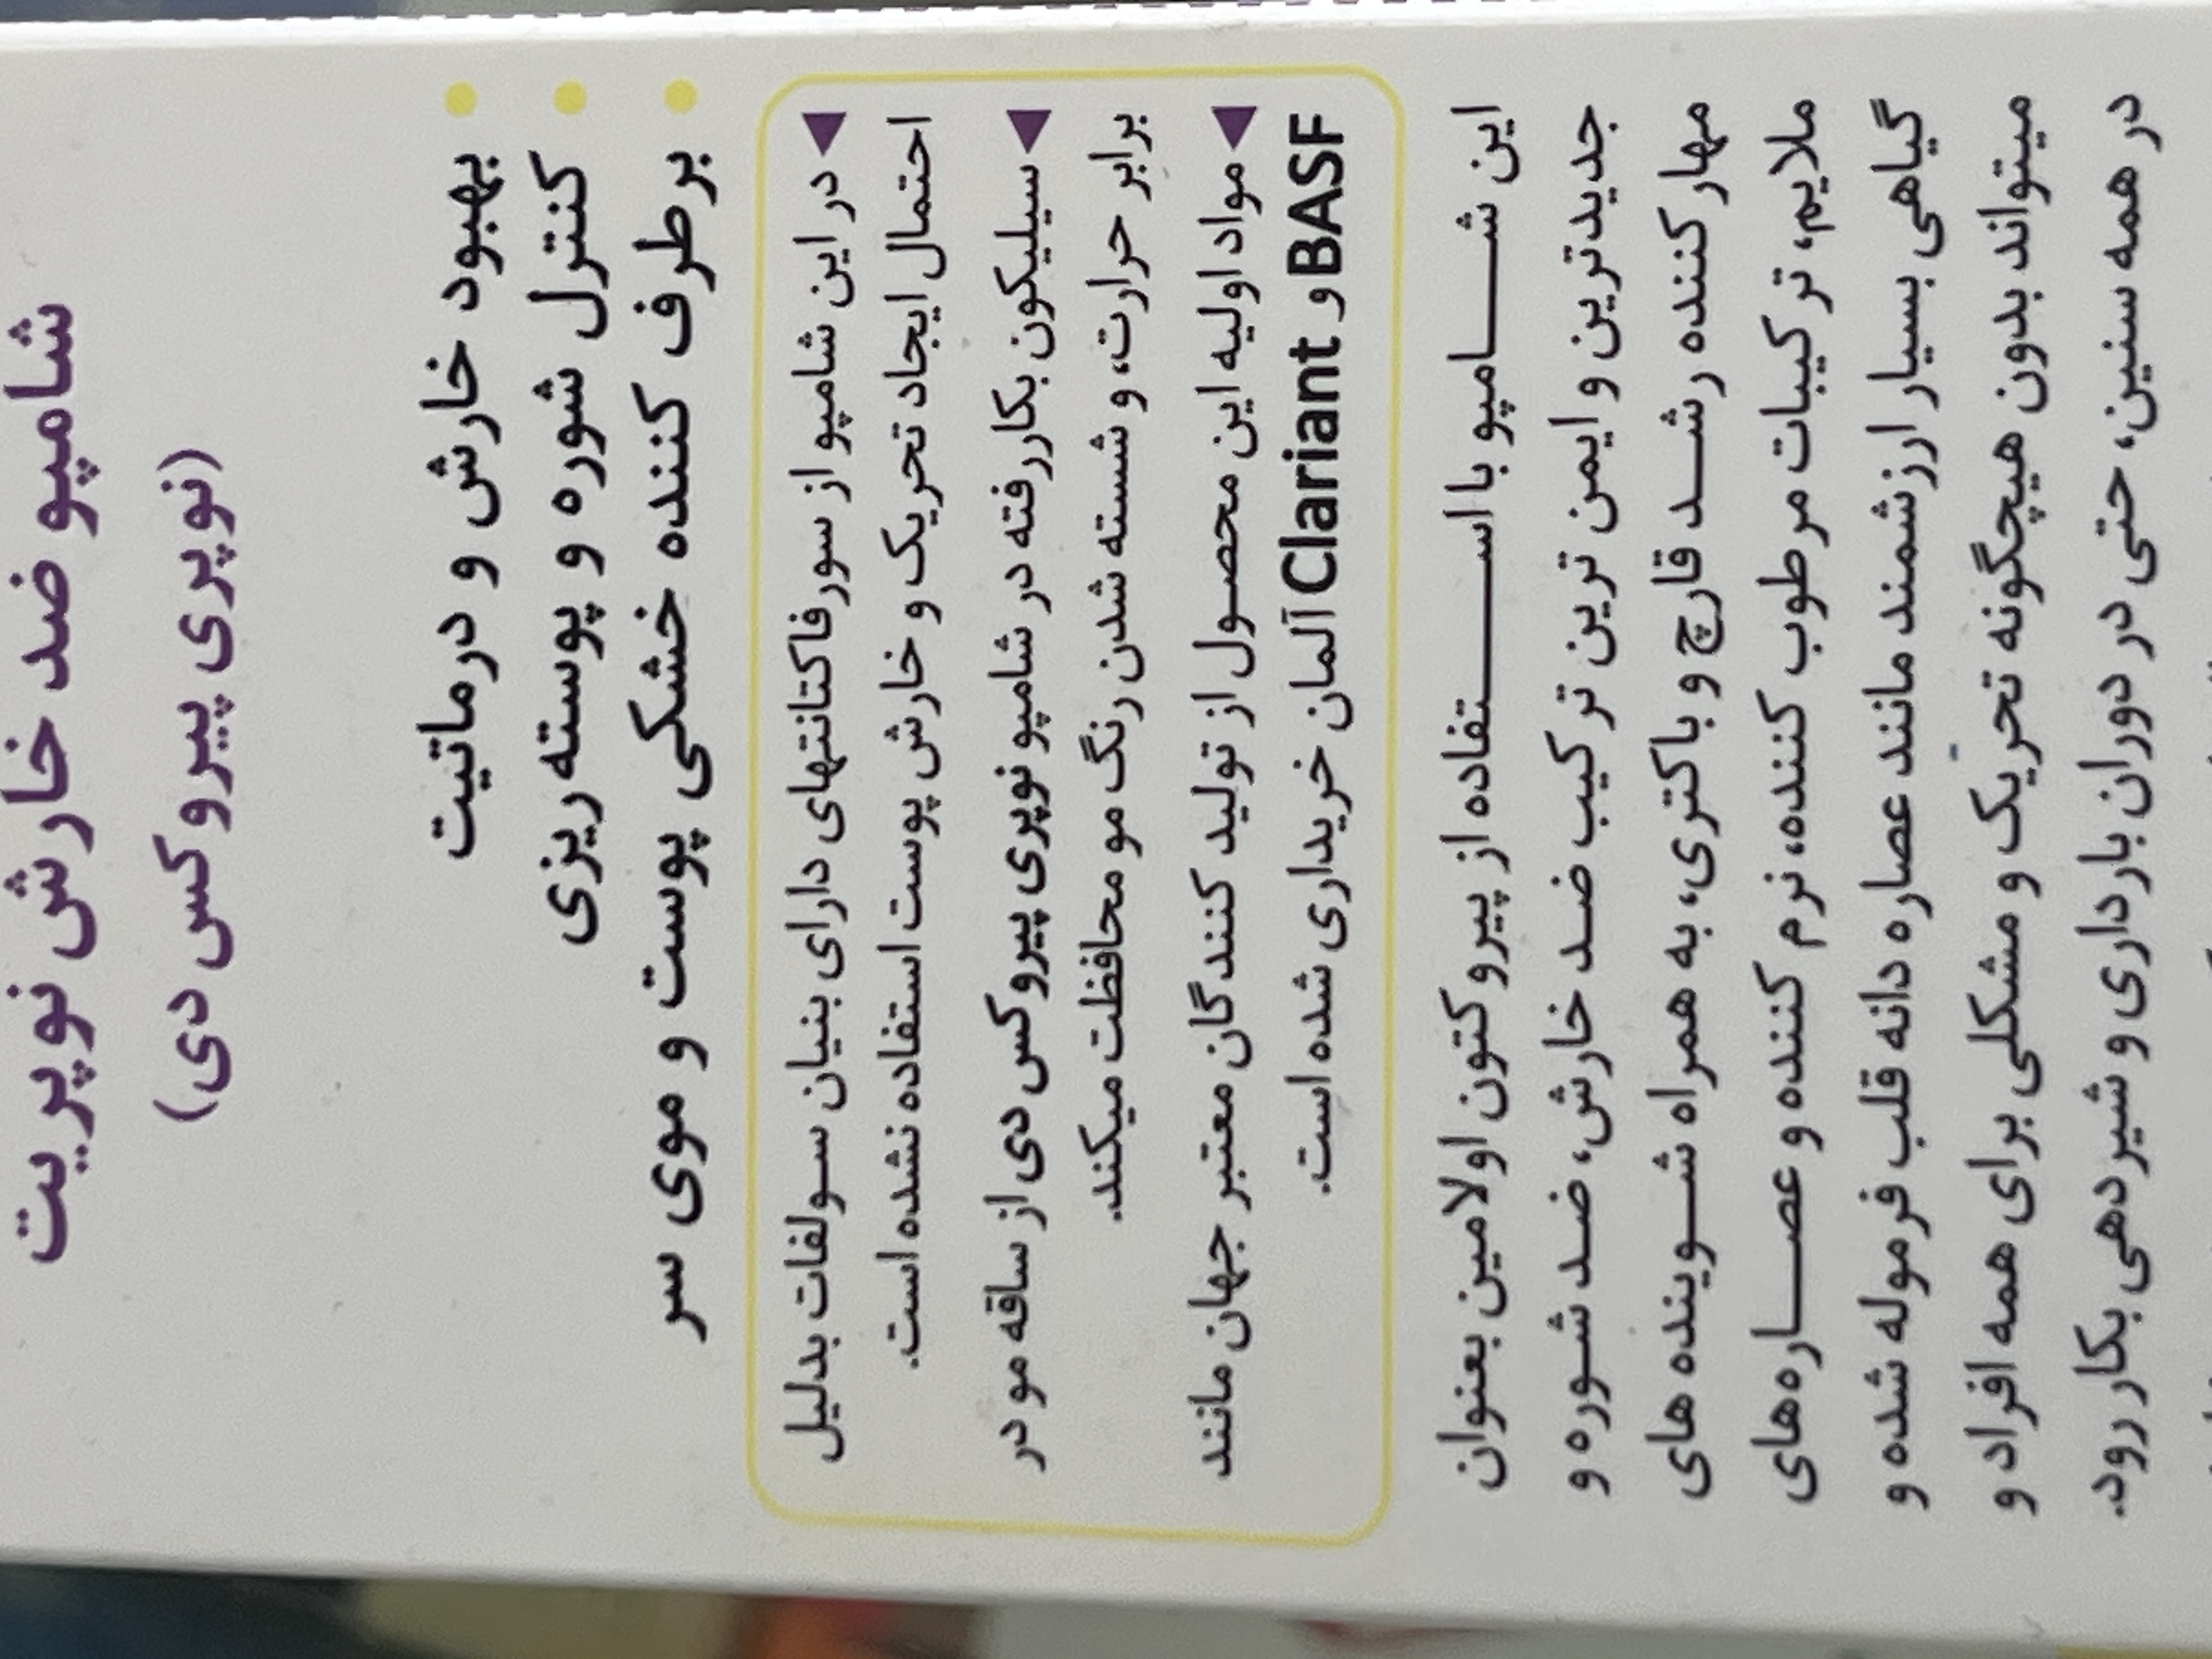 شامپو ضد خارش نوپریت
(نوپری پیروکس دی)
بهبود خارش و درماتیت
کنترل شوره و پوسته ریزی
برطرف کننده خشکی پوست و موی سر
در این شامپو از سورفاکتانتهای دارای بنیان سولفات بدلیل
احتمال ایجاد تحریک و خارش پوست استفاده نشده است.
سیلیکون بکاررفته در شامپو نوپری پیروکس دی از ساقه مو در
برابر حرارت، و شسته شدن رنگ مو محافظت میکند.
مواد اولیه این محصول از تولید کنندگان معتبر جهان مانند
BASF و Clariant آلمان خریداری شده است.
این شامپو با استفاده از پیروکتون اولامین بعنوان
جدیدترین و ایمن ترین ترکیب ضد خارش، ضد شوره و
مهار کننده رشد قارچ و باکتری، به همراه شوینده های
ملایم، ترکیبات مرطوب کننده، نرم کننده و عصاره‌های
گیاهی بسیار ارزشمند مانند عصاره دانه قلب فرموله شده و
میتواند بدون هیچگونه تحریک و مشکلی برای همه افراد و
در همه سنین، حتی در دوران بارداری و شیردهی بکار رود.